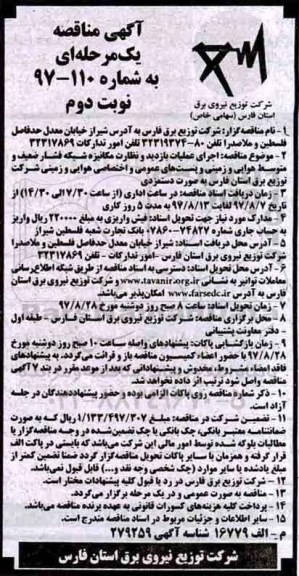 آگهی مناقصه
یک‌مرحله‌ای
به شماره ۱۱۰-۹۷
نوبت دوم
شرکت توزیع نیروی برق
استان فارس (سهامی خاص)
۱- نام مناقصه‌گزار: شرکت توزیع برق فارس به آدرس شیراز خیابان معدل حدفاصل
فلسطین و ملاصدرا تلفن ۸۰-۳۲۳۱۹۳۷۴ تلفن امور تدارکات ۳۲۳۱۷۸۶۹
۲- موضوع مناقصه: اجرای عملیات بازدید و نظارت مکانیزه شبکه فشار ضعیف و
متوسط هوایی و زمینی و پست‌های عمومی و اختصاصی هوایی و زمینی شرکت
توزیع برق استان فارس به صورت دستمزدی
۳- زمان دریافت اسناد مناقصه: در ساعت اداری (از ساعت ۷/۳۰ الی ۱۴/۳۰) از
تاریخ ۹۷/۸/۷ لغایت ۹۷/۸/۱۳ به مدت ۵ روز کاری
۴- مدارک مورد نیاز جهت تحویل اسناد: فیش واریزی به مبلغ ۲۲۰۰۰۰ ریال واریز
به حساب جاری شماره ۷۴۸۲۷-۰۷۸۶۰ بانک تجارت شعبه فلسطین شیراز
۵- آدرس محل دریافت اسناد: شیراز خیابان معدل حدفاصل فلسطین و ملاصدرا
شرکت توزیع نیروی برق فارس - امور تدارکات - تلفن ۳۲۳۱۷۸۶۹
۶- محل تحویل اسناد: دسترسی به اسناد مناقصه از طریق شبکه اطلاع‌رسانی
معاملات توانیر به نشانی www.tavanir.org.ir و شرکت توزیع نیروی برق استان
فارس به آدرس www.farsedc.ir امکان‌پذیر می‌باشد.
۷- زمان تحویل اسناد: ساعت ۸ صبح روز دوشنبه مورخ ۹۷/۸/۲۸
۸- محل برگزاری مناقصه: شرکت توزیع نیروی برق استان فارس - طبقه اول
- دفتر معاونت پشتیبانی
۹- زمان بازگشایی پاکات: پیشنهادهای واصله ساعت ۱۰ صبح روز دوشنبه مورخ
۹۷/۸/۲۸ با حضور اعضاء کمیسیون مناقصه باز و قرائت می‌گردد. به پیشنهادهای
فاقد امضاء مشروط، مخدوش و پیشنهاداتی که بعد از موعد مقرر در بند ۷ آگهی
مناقصه واصل شود ترتیب اثر داده نخواهد شد.
۱۰- ذکر شماره مناقصه روی پاکات الزامی بوده و حضور پیشنهاددهندگان در جلسه
آزاد است.
۱۱- تضمین شرکت در مناقصه: مبلغ ۱/۱۳۳/۶۹۷/۳۰۷ ریال که به صورت
ضمانتنامه معتبر بانکی، چک بانکی یا چک تضمین‌شده در وجه مناقصه‌گزار یا
مطالبات بلوکه شده توسط امور مالی این شرکت می‌باشد که بایستی در پاکت الف
قرار گرفته و همزمان با سایر پاکات تحویل مناقصه‌گزار گردد ضمنا تضمین کمتر از
مبلغ یادشده یا سایر موارد (چک شخصی وجه نقد و...) قابل قبول نمی‌باشد.
۱۲- شرکت توزیع برق فارس در رد یا قبول کلیه پیشنهادات مختار است.
۱۳- مناقصه به صورت عمومی و در یک مرحله برگزار می‌گردد.
۱۴- پرداخت کلیه هزینه‌های کسورات قانونی به عهده برنده مناقصه می‌باشد.
۱۵- سایر اطلاعات و جزئیات مربوط در اسناد مناقصه مندرج است.
م - الف ۱۶۷۷۹ شناسه آگهی ۲۷۹۲۵۹
شرکت توزیع نیروی برق استان فارس